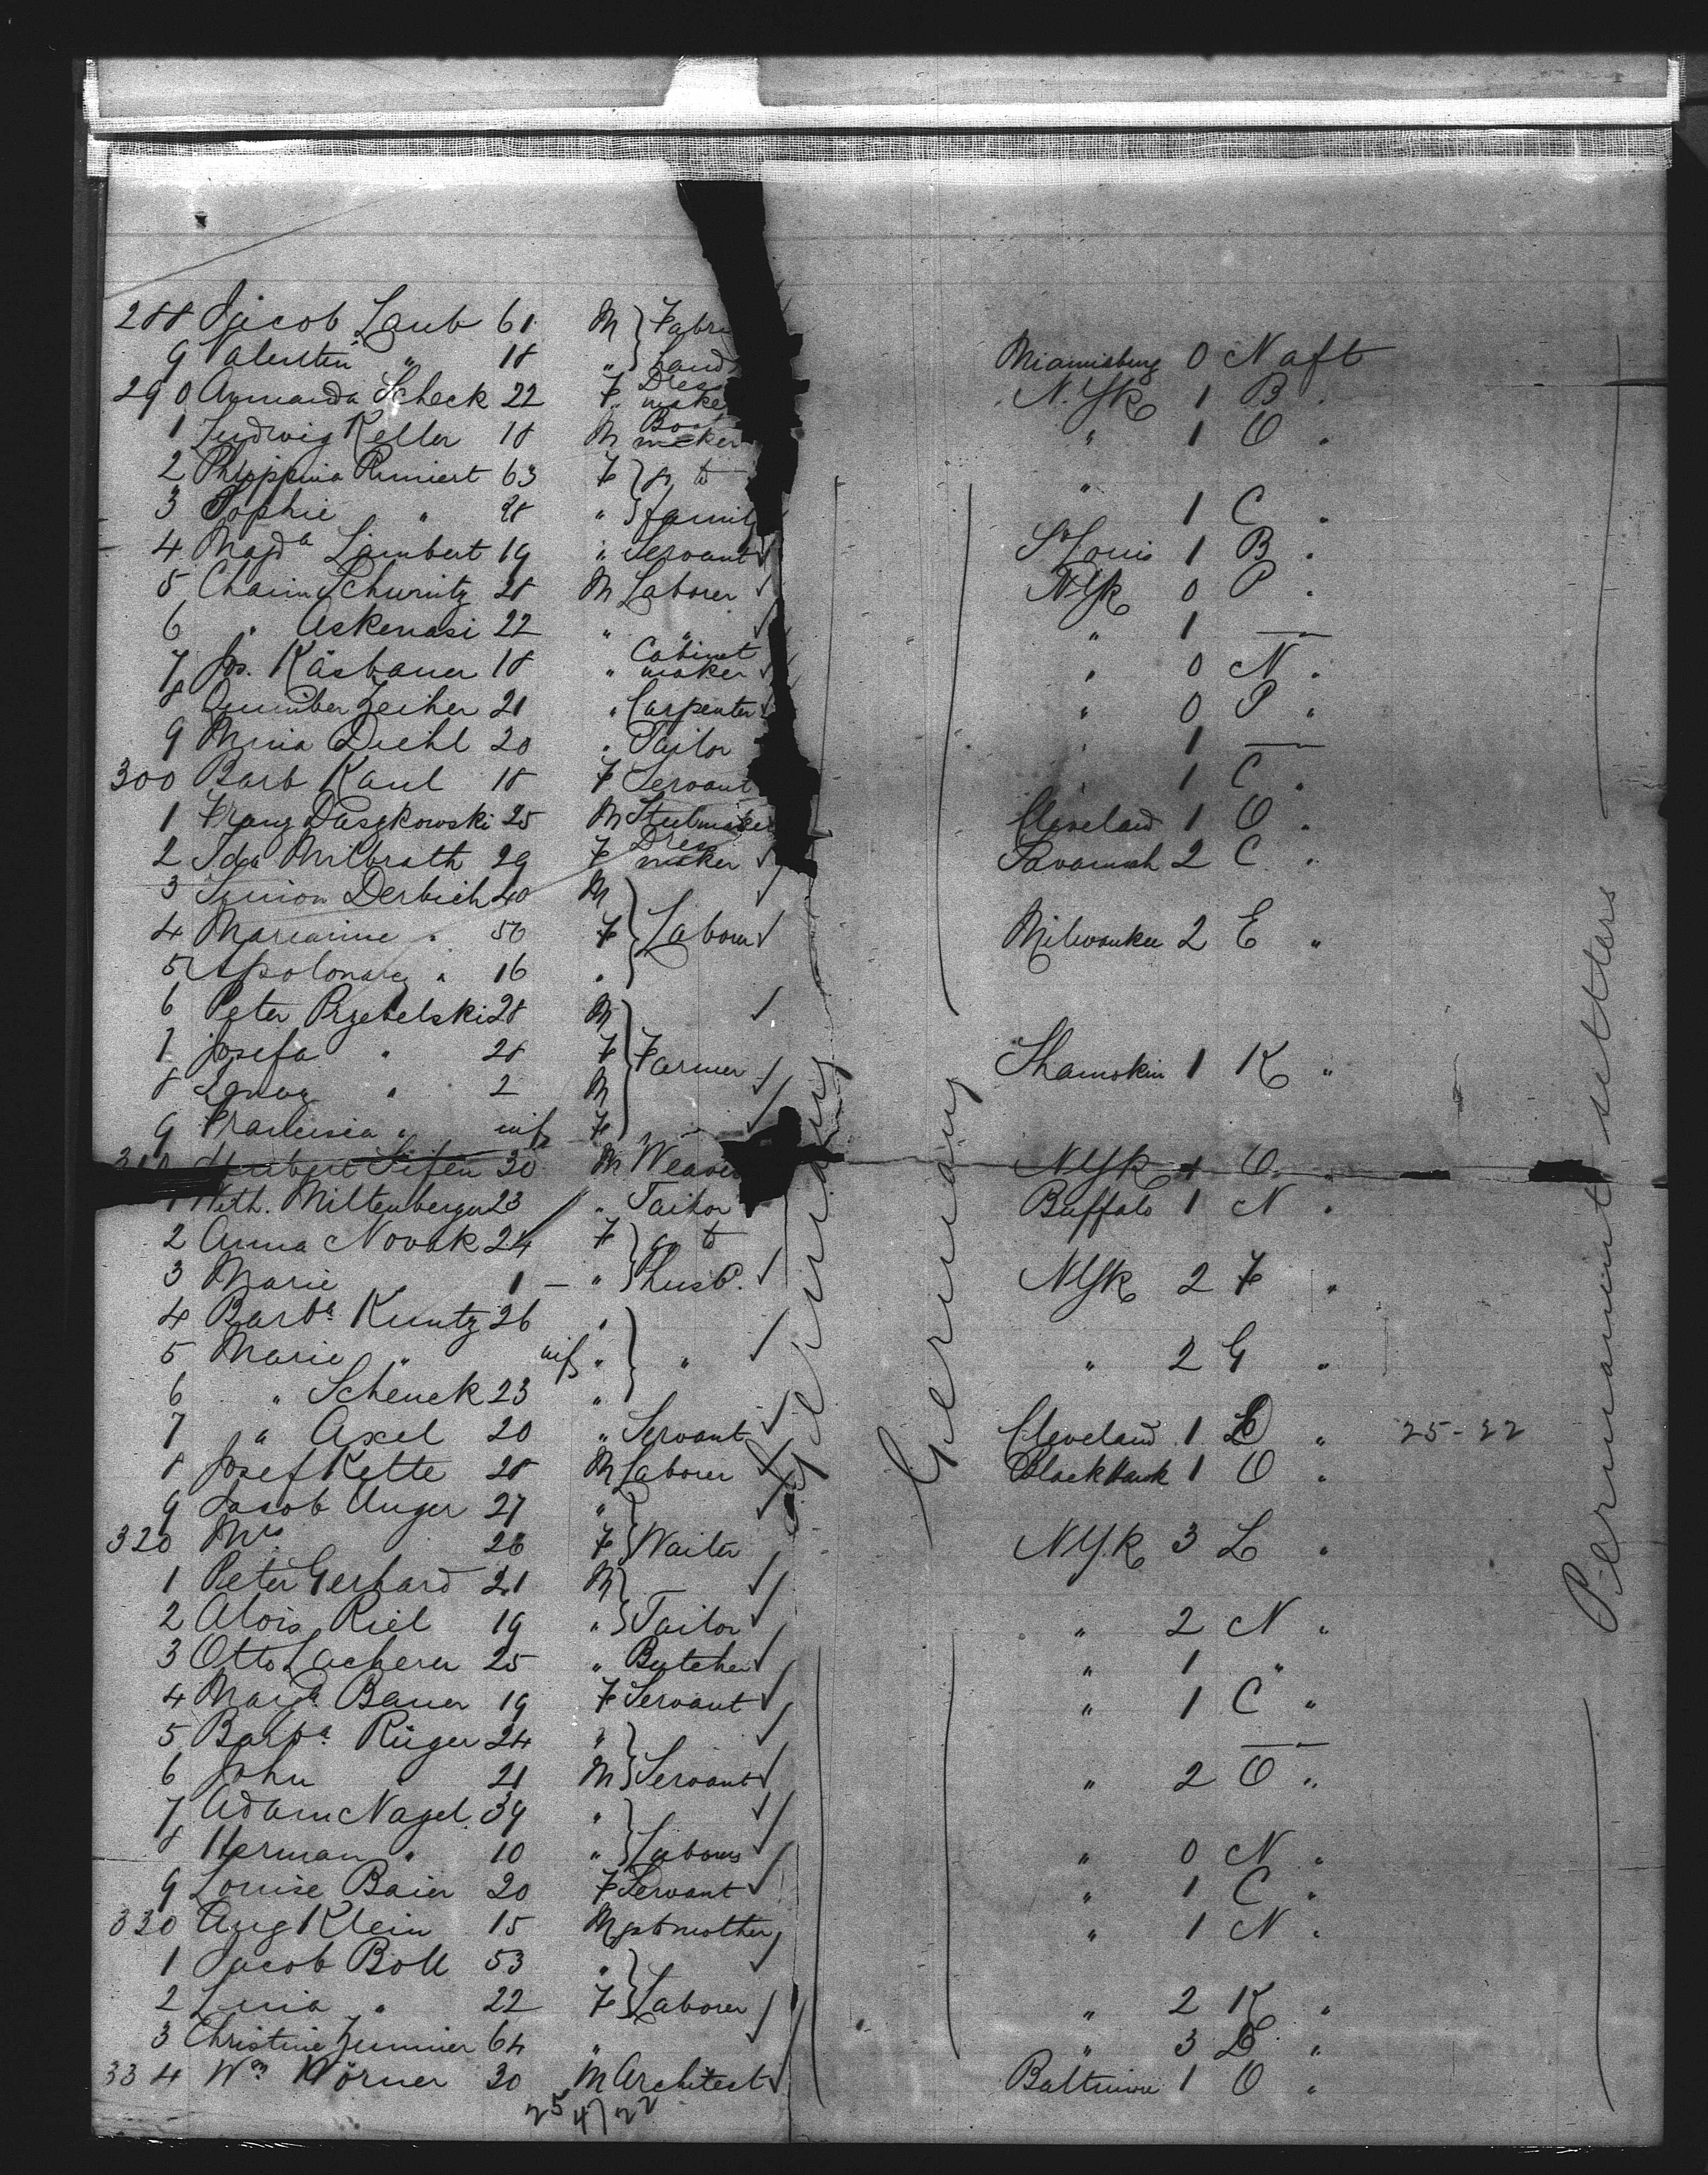 288 Jacob Laub 61 M } Fabri
9 Valentin " 18 " } Land Miamisburg 0 N aft
290 Amanda Scheck 22 F Dress make N. Yk 1 B "
1 Ludwig Keller 18 M maker " 1 O "
2 Philippina 63 F } go to "
3 Sophie " 28 " } famil 1 C "
4 Magda Lambert 19 " Servant St Louis 1 B "
5 Chaim Schurnitz 28 M Laborer N Yk 0 P "
6 " Askenasi 22 " " " 1 —
7 Jos. Käsbauer 18 " Cabinet maker " 0 N "
8 Zeiher 21 " Carpenter " 0 P "
9 Mina Diehl 20 " Tailor " 1 —
300 Barb Kaul 18 F Servant 1 C "
1 Franz Daszkowski 25 M Cleveland 1 O "
2 Ida Milbrath 29 F Dress maker Savannah 2 C "
3 Symon Derbich 40 M }
4 Marianne " 50 F } Laborer Milwaukee 2 E "
5 " 16 " }
6 Peter Przebelski 28 M }
7 Josefa " 28 F } Farmer Shamokin 1 K "
8 " 2 M }
9 " inf F }
310 30 M Weaver N Yk 1 O "
1 Wilh. Miltenberger 23 " Tailor Buffalo 1 N "
2 Anna Novak 24 F } go to
3 Marie " 1 — " } husb. N Yk 2 F "
4 Barba Kuntz 26 " }
5 Marie " inf " } " " 2 G "
6 " Schenck 23 " }
7 " Axel 20 " Servant Cleveland 1 " 25-22
8 Josef Kette 28 M Laborer Blackhawk 1 O "
9 Jacob Unger 27 " }
320 Mrs 26 F } Waiter N Yk 3 L "
1 Peter Gerhard 21 M }
2 Alois Riel 19 " } Tailor " 2 N "
3 Otto Lacherer 25 " Butcher " 1 "
4 Margt Bauer 19 F Servant " 1 C "
5 Barba Rüger 24 " } —
6 John " 21 M } Servant " 2 O "
7 Adam Nagel 39 " }
8 Herman " 10 " } Laborers " 0 N "
9 Louise Baier 20 F Servant " 1 C "
330 Aug Klein 15 M gst mother " 1 N "
1 Jacob Boll 53 " }
2 Lina " 22 F } Laborer " 2 K "
3 Christine 64 " " 3 "
334 Wm Körner 30 M Architect Baltimore 1 O "
25 4/22
Germany
Germany
Permanent settlers